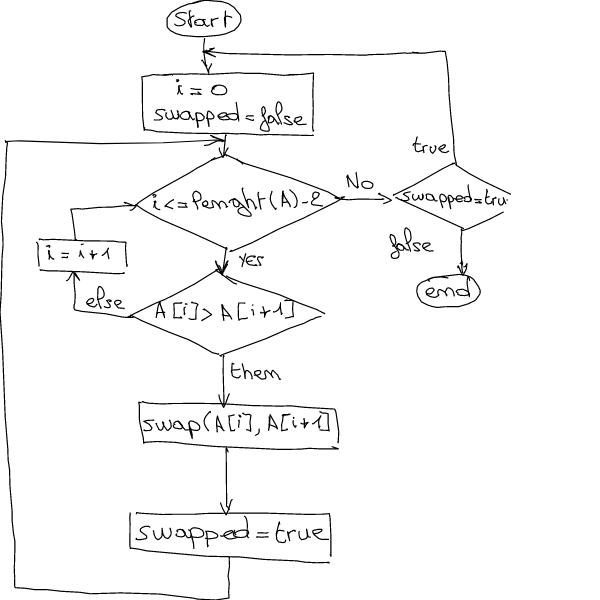 Start
i = 0
swapped = false
true
i <= lenght(A) - 2
No
swapped = tru
i = i + 1
yes
false
else
A[i] > A[i+1]
end
then
swap(A[i], A[i+1]
swapped = true